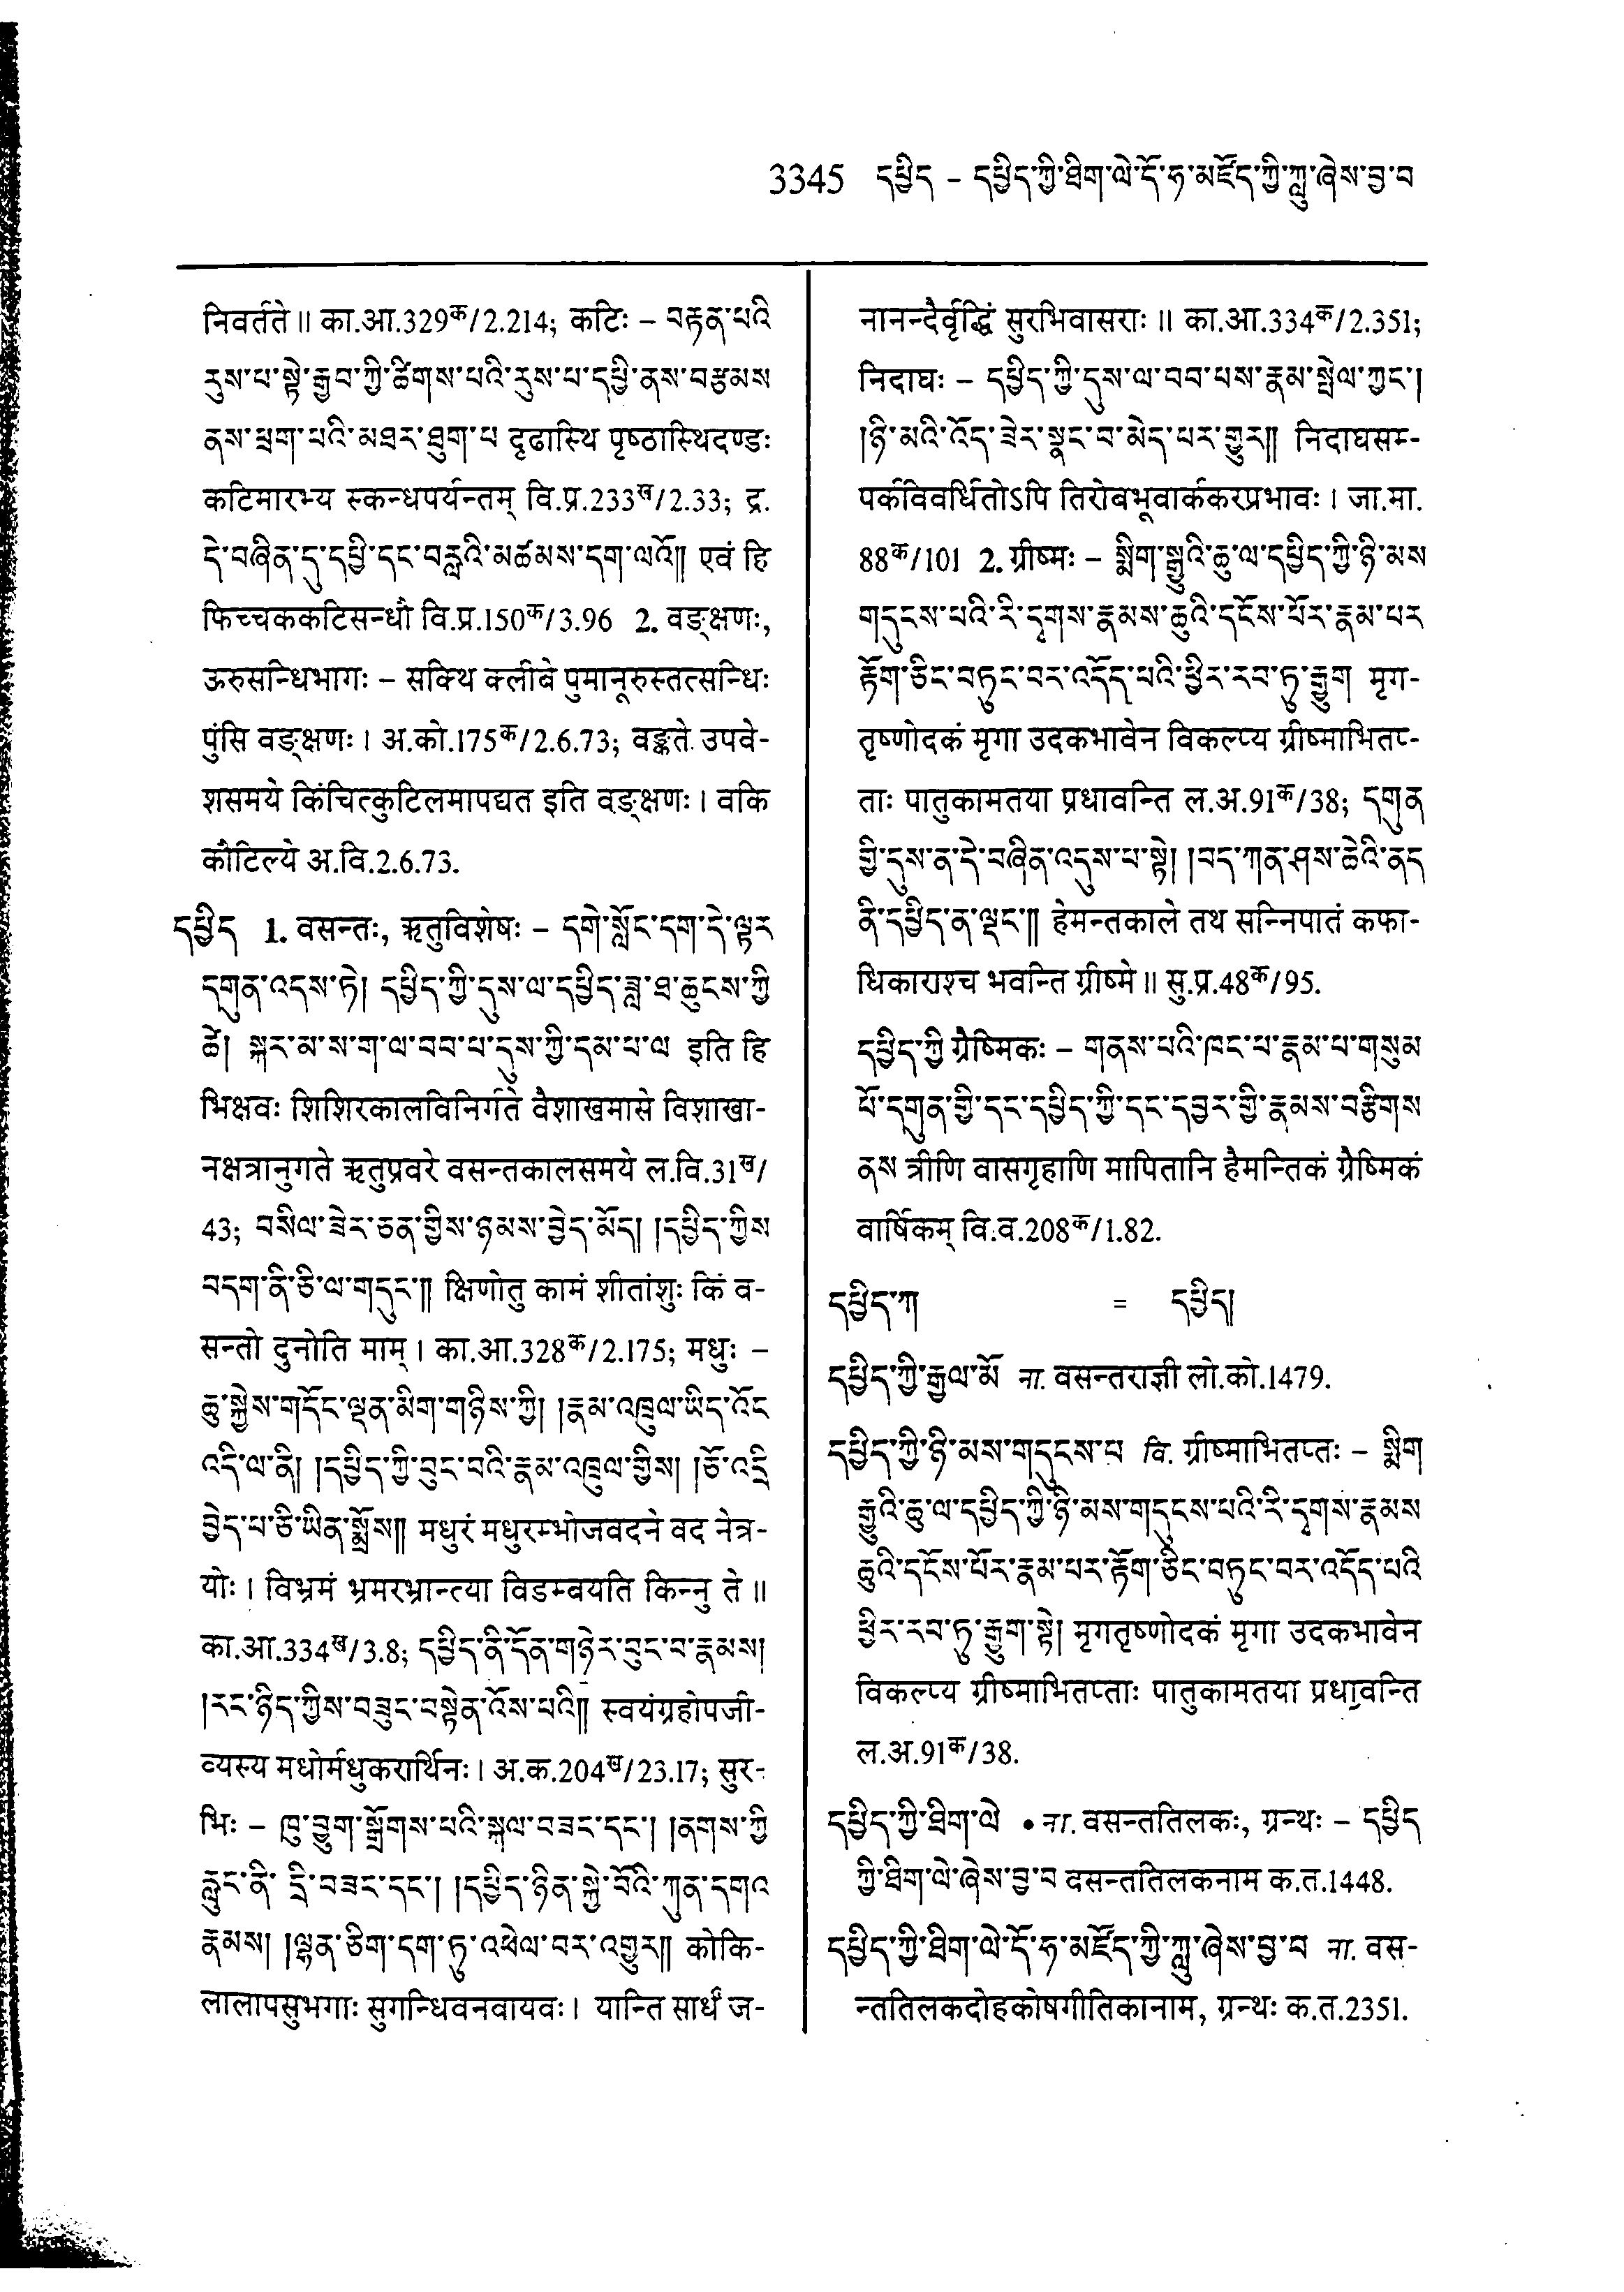 3345 དཔྱིད – དཔྱིད་ཀྱི་ཐིག་ལེ་དོ་ཧ་མཛོད་ཀྱི་ཀླུ་ཞེས་བྱ་བ
निवर्तते॥ का.आ.329क/2.214; कटिः – བརྟན་པའི
རུས་པ་སྟེ་རྒྱབ་ཀྱི་ཚིགས་པའི་རུས་པ་དཔྱི་ནས་བརྩམས
ནས་ཕྲག་པའི་མཐར་ཐུག་པ दृढास्थि पृष्ठास्थिदण्डः
कटिमारभ्य स्कन्धपर्यन्तम् वि.प्र.233ख/2.33; द्र.
དེ་བཞིན་དུ་དཔྱི་དང་བརླའི་མཚམས་དག་ལའོ༎ एवं हि
फिच्चककटिसन्धौ वि.प्र.150क/3.96 2. वङ्क्षणः,
ऊरुसन्धिभागः – सक्थि क्लीबे पुमानूरुस्तत्सन्धिः
पुंसि वङ्क्षणः। अ.को.175क/2.6.73; वङ्कते उपवे-
शसमये किंचित्कुटिलमापद्यत इति वङ्क्षणः। वकि
कौटिल्ये अ.वि.2.6.73.
དཔྱིད 1. वसन्तः, ऋतुविशेषः – དགེ་སློང་དག་དེ་ལྟར
དགུན་འདས་ཏེ། དཔྱིད་ཀྱི་དུས་ལ་དཔྱིད་ཟླ་ཐ་ཆུངས་ཀྱི
ཚེ། སྐར་མ་ས་ག་ལ་བབ་པ་དུས་ཀྱི་དམ་པ་ལ इति हि
भिक्षवः शिशिरकालविनिर्गते वैशाखमासे विशाखा-
नक्षत्रानुगते ऋतुप्रवरे वसन्तकालसमये ल.वि.31ख/
43; བསིལ་ཟེར་ཅན་གྱིས་ཉམས་བྱེད་མོད། །དཔྱིད་ཀྱིས
བདག་ནི་ཅི་ལ་གདུང་༎ क्षिणोतु कामं शीतांशुः किं व-
सन्तो दुनोति माम्। का.आ.328क/2.175; मधुः –
ཆུ་སྐྱེས་གདོང་ལྡན་མིག་གཉིས་ཀྱི། །རྣམ་འཁྲུལ་ཡིད་འོང
འདི་ལ་ནི། །དཔྱིད་ཀྱི་བུང་བའི་རྣམ་འཁྲུལ་གྱིས། །ཅོ་འདྲི
བྱེད་པ་ཅི་ཡིན་སྨྲོས༎ मधुरं मधुरम्भोजवदने वद नेत्र-
योः। विभ्रमं भ्रमरभ्रान्त्या विडम्बयति किन्नु ते॥
का.आ.334ख/3.8; དཔྱིད་ནི་དོན་གཉེར་བུང་བ་རྣམས།
།རང་ཉིད་ཀྱིས་བཟུང་བསྟེན་འོས་པའི༎ स्वयंग्रहोपजी-
व्यस्य मधोर्मधुकरार्थिनः। अ.क.204ख/23.17; सुर-
भिः – ཁུ་བྱུག་སྒྲོགས་པའི་སྐལ་བཟང་དང་། །ནགས་ཀྱི
རླུང་ནི་ དྲི་བཟང་དང་། །དཔྱིད་ཉིན་སྐྱེ་བོའི་ཀུན་དགའ
རྣམས། །ལྷན་ཅིག་དག་ཏུ་འཕེལ་བར་འགྱུར༎ कोकि-
लालापसुभगाः सुगन्धिवनवायवः। यान्ति सार्धं ज-
नानन्दैर्वृद्धिं सुरभिवासराः॥ का.आ.334क/2.351;
निदाघः – དཔྱིད་ཀྱི་དུས་ལ་བབ་པས་རྣམ་སྤེལ་ཀྱང་།
།ཉི་མའི་འོད་ཟེར་སྣང་བ་མེད་པར་གྱུར༎ निदाघसम्-
पर्कविवर्धितोऽपि तिरोबभूवार्ककरप्रभावः। जा.मा.
88क/101 2. ग्रीष्मः – སྨིག་སྒྱུའི་ཆུ་ལ་དཔྱིད་ཀྱི་ཉི་མས
གདུངས་པའི་རི་དྭགས་རྣམས་ཆུའི་དངོས་པོར་རྣམ་པར
རྟོག་ཅིང་བཏུང་བར་འདོད་པའི་ཕྱིར་རབ་ཏུ་རྒྱུག मृग-
तृष्णोदकं मृगा उदकभावेन विकल्प्य ग्रीष्माभितप्-
ताः पातुकामतया प्रधावन्ति ल.अ.91क/38; དགུན
གྱི་དུས་ན་དེ་བཞིན་འདུས་པ་སྟེ། །བད་ཀན་ཤས་ཆེའི་ནད
ནི་དཔྱིད་ན་ལྡང་༎ हेमन्तकाले तथ सन्निपातं कफा-
धिकाराश्च भवन्ति ग्रीष्मे॥ सु.प्र.48क/95.
དཔྱིད་ཀྱི ग्रैष्मिकः – གནས་པའི་ཁང་པ་རྣམ་པ་གསུམ
པོ་དགུན་གྱི་དང་དཔྱིད་ཀྱི་དང་དབྱར་གྱི་རྣམས་བརྩིགས
ནས त्रीणि वासगृहाणि मापितानि हैमन्तिकं ग्रैष्मिकं
वार्षिकम् वि.व.208क/1.82.
དཔྱིད་ཀ = དཔྱིད།
དཔྱིད་ཀྱི་རྒྱལ་མོ ना. वसन्तराज्ञी लो.को.1479.
དཔྱིད་ཀྱི་ཉི་མས་གདུངས་པ वि. ग्रीष्माभितप्तः – སྨིག
རྒྱུའི་ཆུ་ལ་དཔྱིད་ཀྱི་ཉི་མས་གདུངས་པའི་རི་དྭགས་རྣམས
ཆུའི་དངོས་པོར་རྣམ་པར་རྟོག་ཅིང་བཏུང་བར་འདོད་པའི
ཕྱིར་རབ་ཏུ་རྒྱུག་སྟེ། मृगतृष्णोदकं मृगा उदकभावेन
विकल्प्य ग्रीष्माभितप्ताः पातुकामतया प्रधावन्ति
ल.अ.91क/38.
དཔྱིད་ཀྱི་ཐིག་ལེ • ना. वसन्ततिलकः, ग्रन्थः – དཔྱིད
ཀྱི་ཐིག་ལེ་ཞེས་བྱ་བ वसन्ततिलकनाम क.त.1448.
དཔྱིད་ཀྱི་ཐིག་ལེ་དོ་ཧ་མཛོད་ཀྱི་ཀླུ་ཞེས་བྱ་བ ना. वस-
न्ततिलकदोहकोषगीतिकानाम, ग्रन्थः क.त.2351.